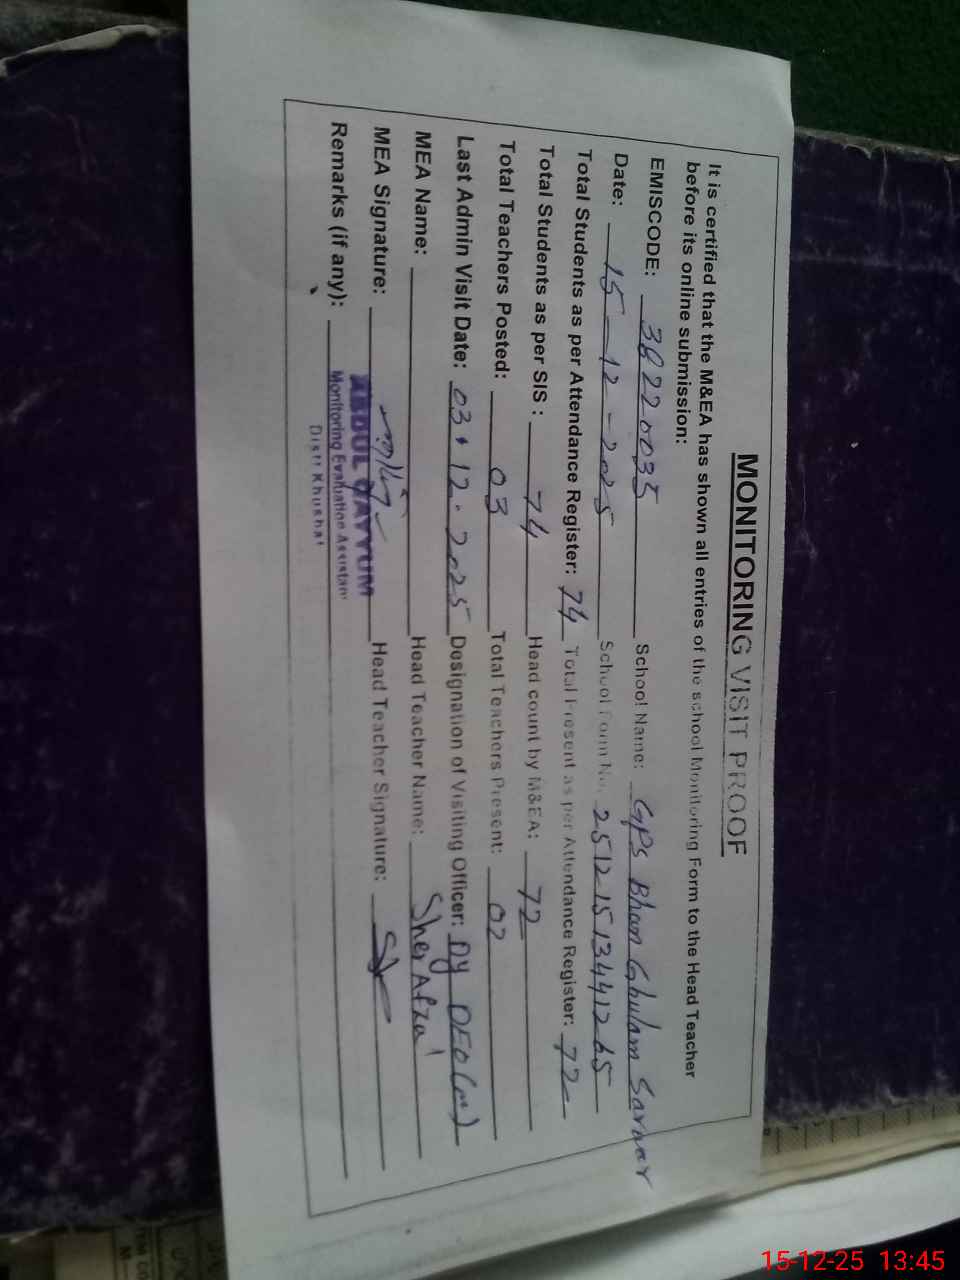 MONITORING VISIT PROOF
It is certified that the M&EA has shown all entries of the school Monitoring Form to the Head Teacher
before its online submission:
EMISCODE: 38220035 School Name: GPS Bhan Ghulam Sarwar
Date: 15-12-2025 School Form No. 25121513441265
Total Students as per Attendance Register: 74 Total Present as per Attendance Register: 72
Total Students as per SIS : 74 Head count by M&EA: 72
Total Teachers Posted: 03 Total Teachers Present: 02
Last Admin Visit Date: 03.12.2025 Designation of Visiting Officer: Dy DEO(M)
MEA Name: Head Teacher Name: Sher Afzal
MEA Signature: Head Teacher Signature:
Remarks (if any):
ABDUL QAYYUM
Monitoring Evaluation Assistant
Distt Khushab
15-12-25 13:45